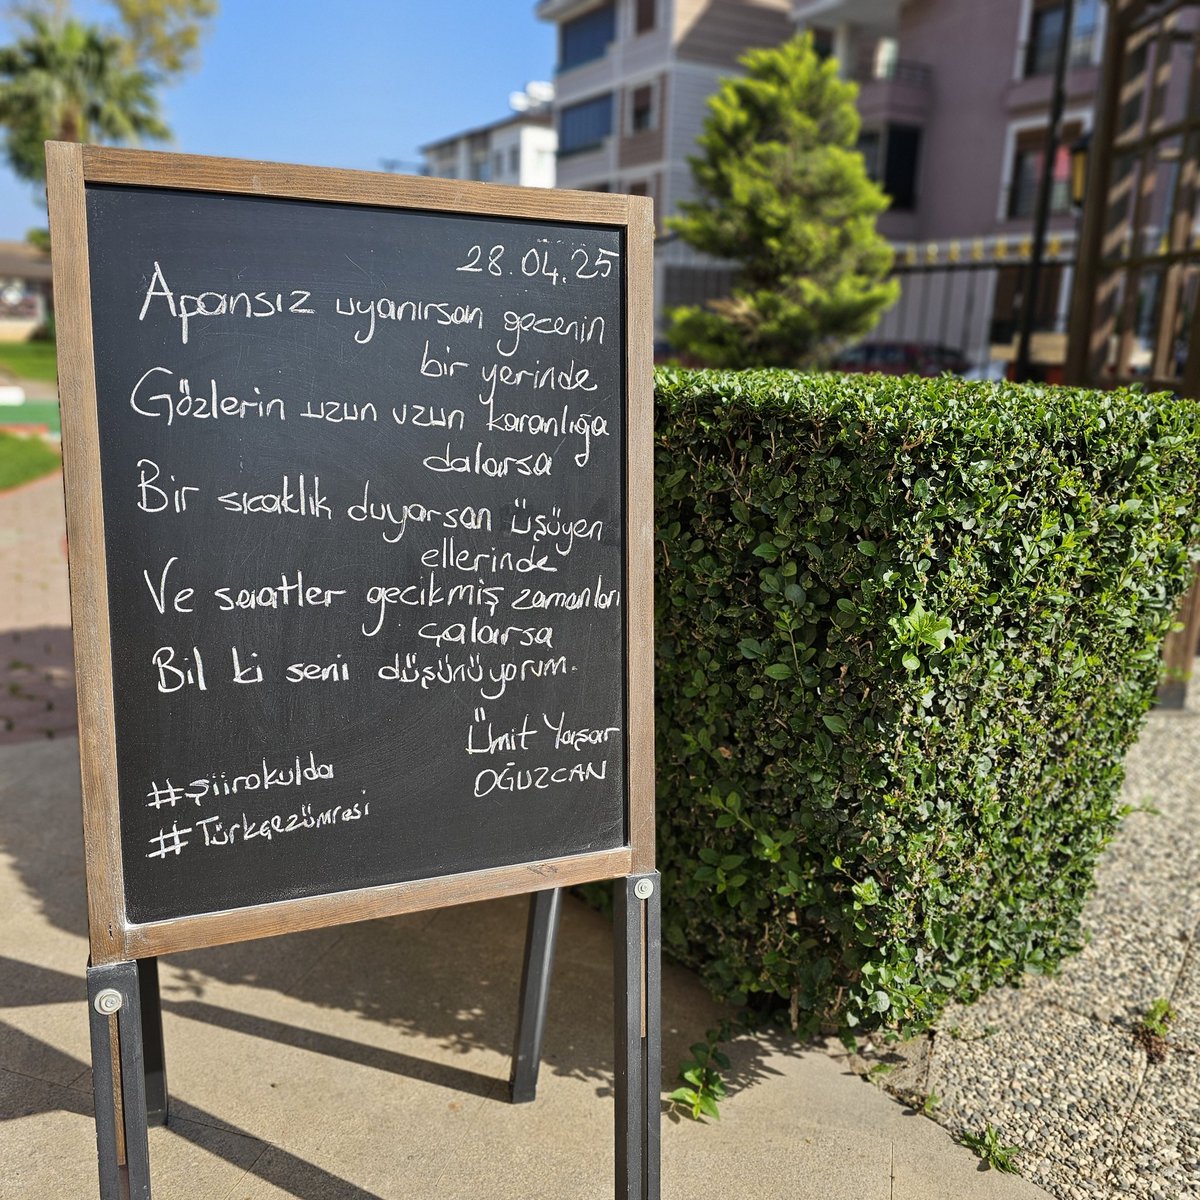 28.04.25
Apansız uyanırsan gecenin
bir yerinde
Gözlerin uzun uzun karanlığa
dalarsa
Bir sıcaklık duyarsan üşüyen
ellerinde
Ve saatler gecikmiş zamanları
çalarsa
Bil ki seni düşünüyorum.
Ümit Yaşar
OĞUZCAN
#şiirokulda
#Türkçezümresi